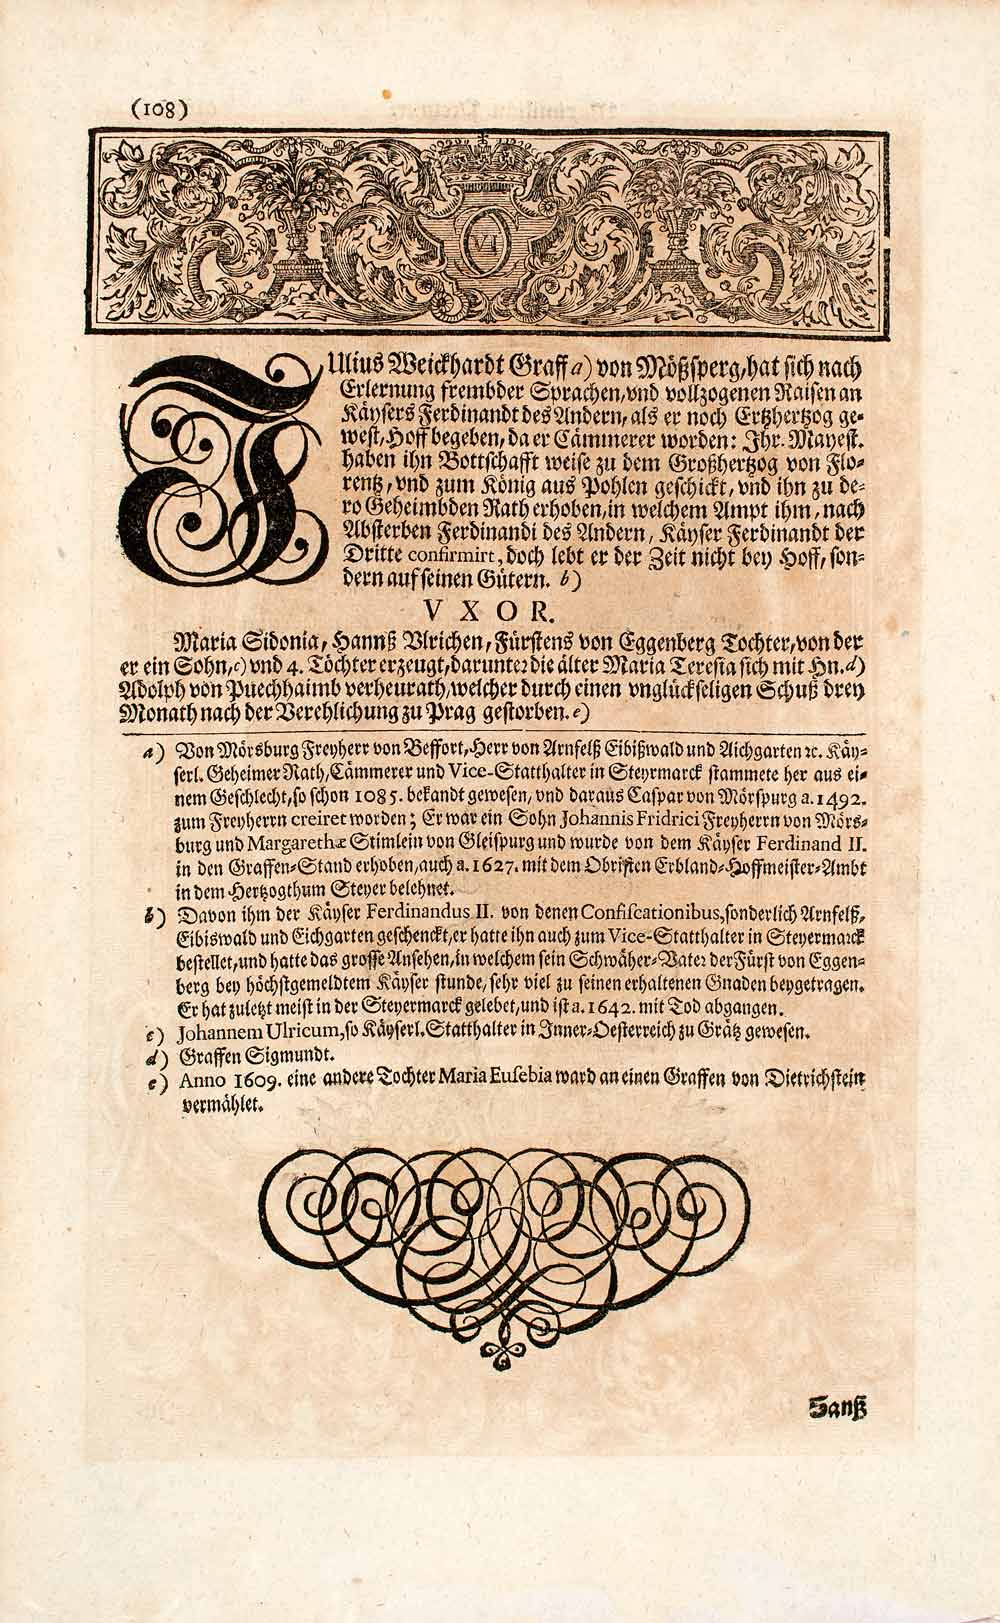 (108)
VI
JUlius Weickhardt Graff a) von Mößsperg, hat sich nach
Erlernung frembder Sprachen, vnd vollzogenen Raisen an
Käysers Ferdinandt des Andern, als er noch Ertzhertzog ge-
west, Hoff begeben, da er Cämmerer worden: Ihr. Mayest.
haben ihn Bottschafft weise zu dem Großhertzog von Flo-
rentz, vnd zum König aus Pohlen geschickt, vnd ihn zu de-
ro Geheimbden Rath erhoben, in welchem Ampt ihm, nach
Absterben Ferdinandi des Andern, Käyser Ferdinandt der
Dritte confirmirt, doch lebt er der Zeit nicht bey Hoff, son-
dern auf seinen Gütern. b)
VXOR.
Maria Sidonia, Hannß Vlrichen, Fürstens von Eggenberg Tochter, von der
er ein Sohn, c) vnd 4. Töchter erzeugt, darunter die älter Maria Teresia sich mit Hn. d)
Adolph von Puechhaimb verheurath, welcher durch einen vnglückseligen Schuß drey
Monath nach der Verehlichung zu Prag gestorben. e)
a) Von Mörsburg Freyherr von Beffort, Herr von Arnfelß Eibißwald und Aichgarten ꝛc. Käy-
serl. Geheimer Rath, Cämmerer und Vice-Statthalter in Steyrmarck stammete her aus ei-
nem Geschlecht, so schon 1085. bekandt gewesen, vnd daraus Caspar von Mörspurg a. 1492.
zum Freyherrn creiret worden; Er war ein Sohn Johannis Fridrici Freyherrn von Mörs-
burg und Margarethæ Stimlein von Gleispurg und wurde von dem Käyser Ferdinand II.
in den Graffen-Stand erhoben, auch a. 1627. mit dem Obristen Erbland-Hoffmeister-Ambt
in dem Hertzogthum Steyer belehnet.
b) Davon ihm der Käyser Ferdinandus II. von denen Confiscationibus, sonderlich Arnfelß,
Eibiswald und Eichgarten geschenckt, er hatte ihn auch zum Vice-Statthalter in Steyermarck
bestellet, und hatte das grosse Ansehen, in welchem sein Schwäher-Vater der Fürst von Eggen-
berg bey höchstgemeldtem Käyser stunde, sehr viel zu seinen erhaltenen Gnaden beygetragen.
Er hat zuletzt meist in der Steyermarck gelebet, und ist a. 1642. mit Tod abgangen.
c) Johannem Ulricum, so Käyserl. Statthalter in Inner-Oesterreich zu Grätz gewesen.
d) Graffen Sigmundt.
e) Anno 1609. eine andere Tochter Maria Eusebia ward an einen Graffen von Dietrichstein
vermählet.
Sanß